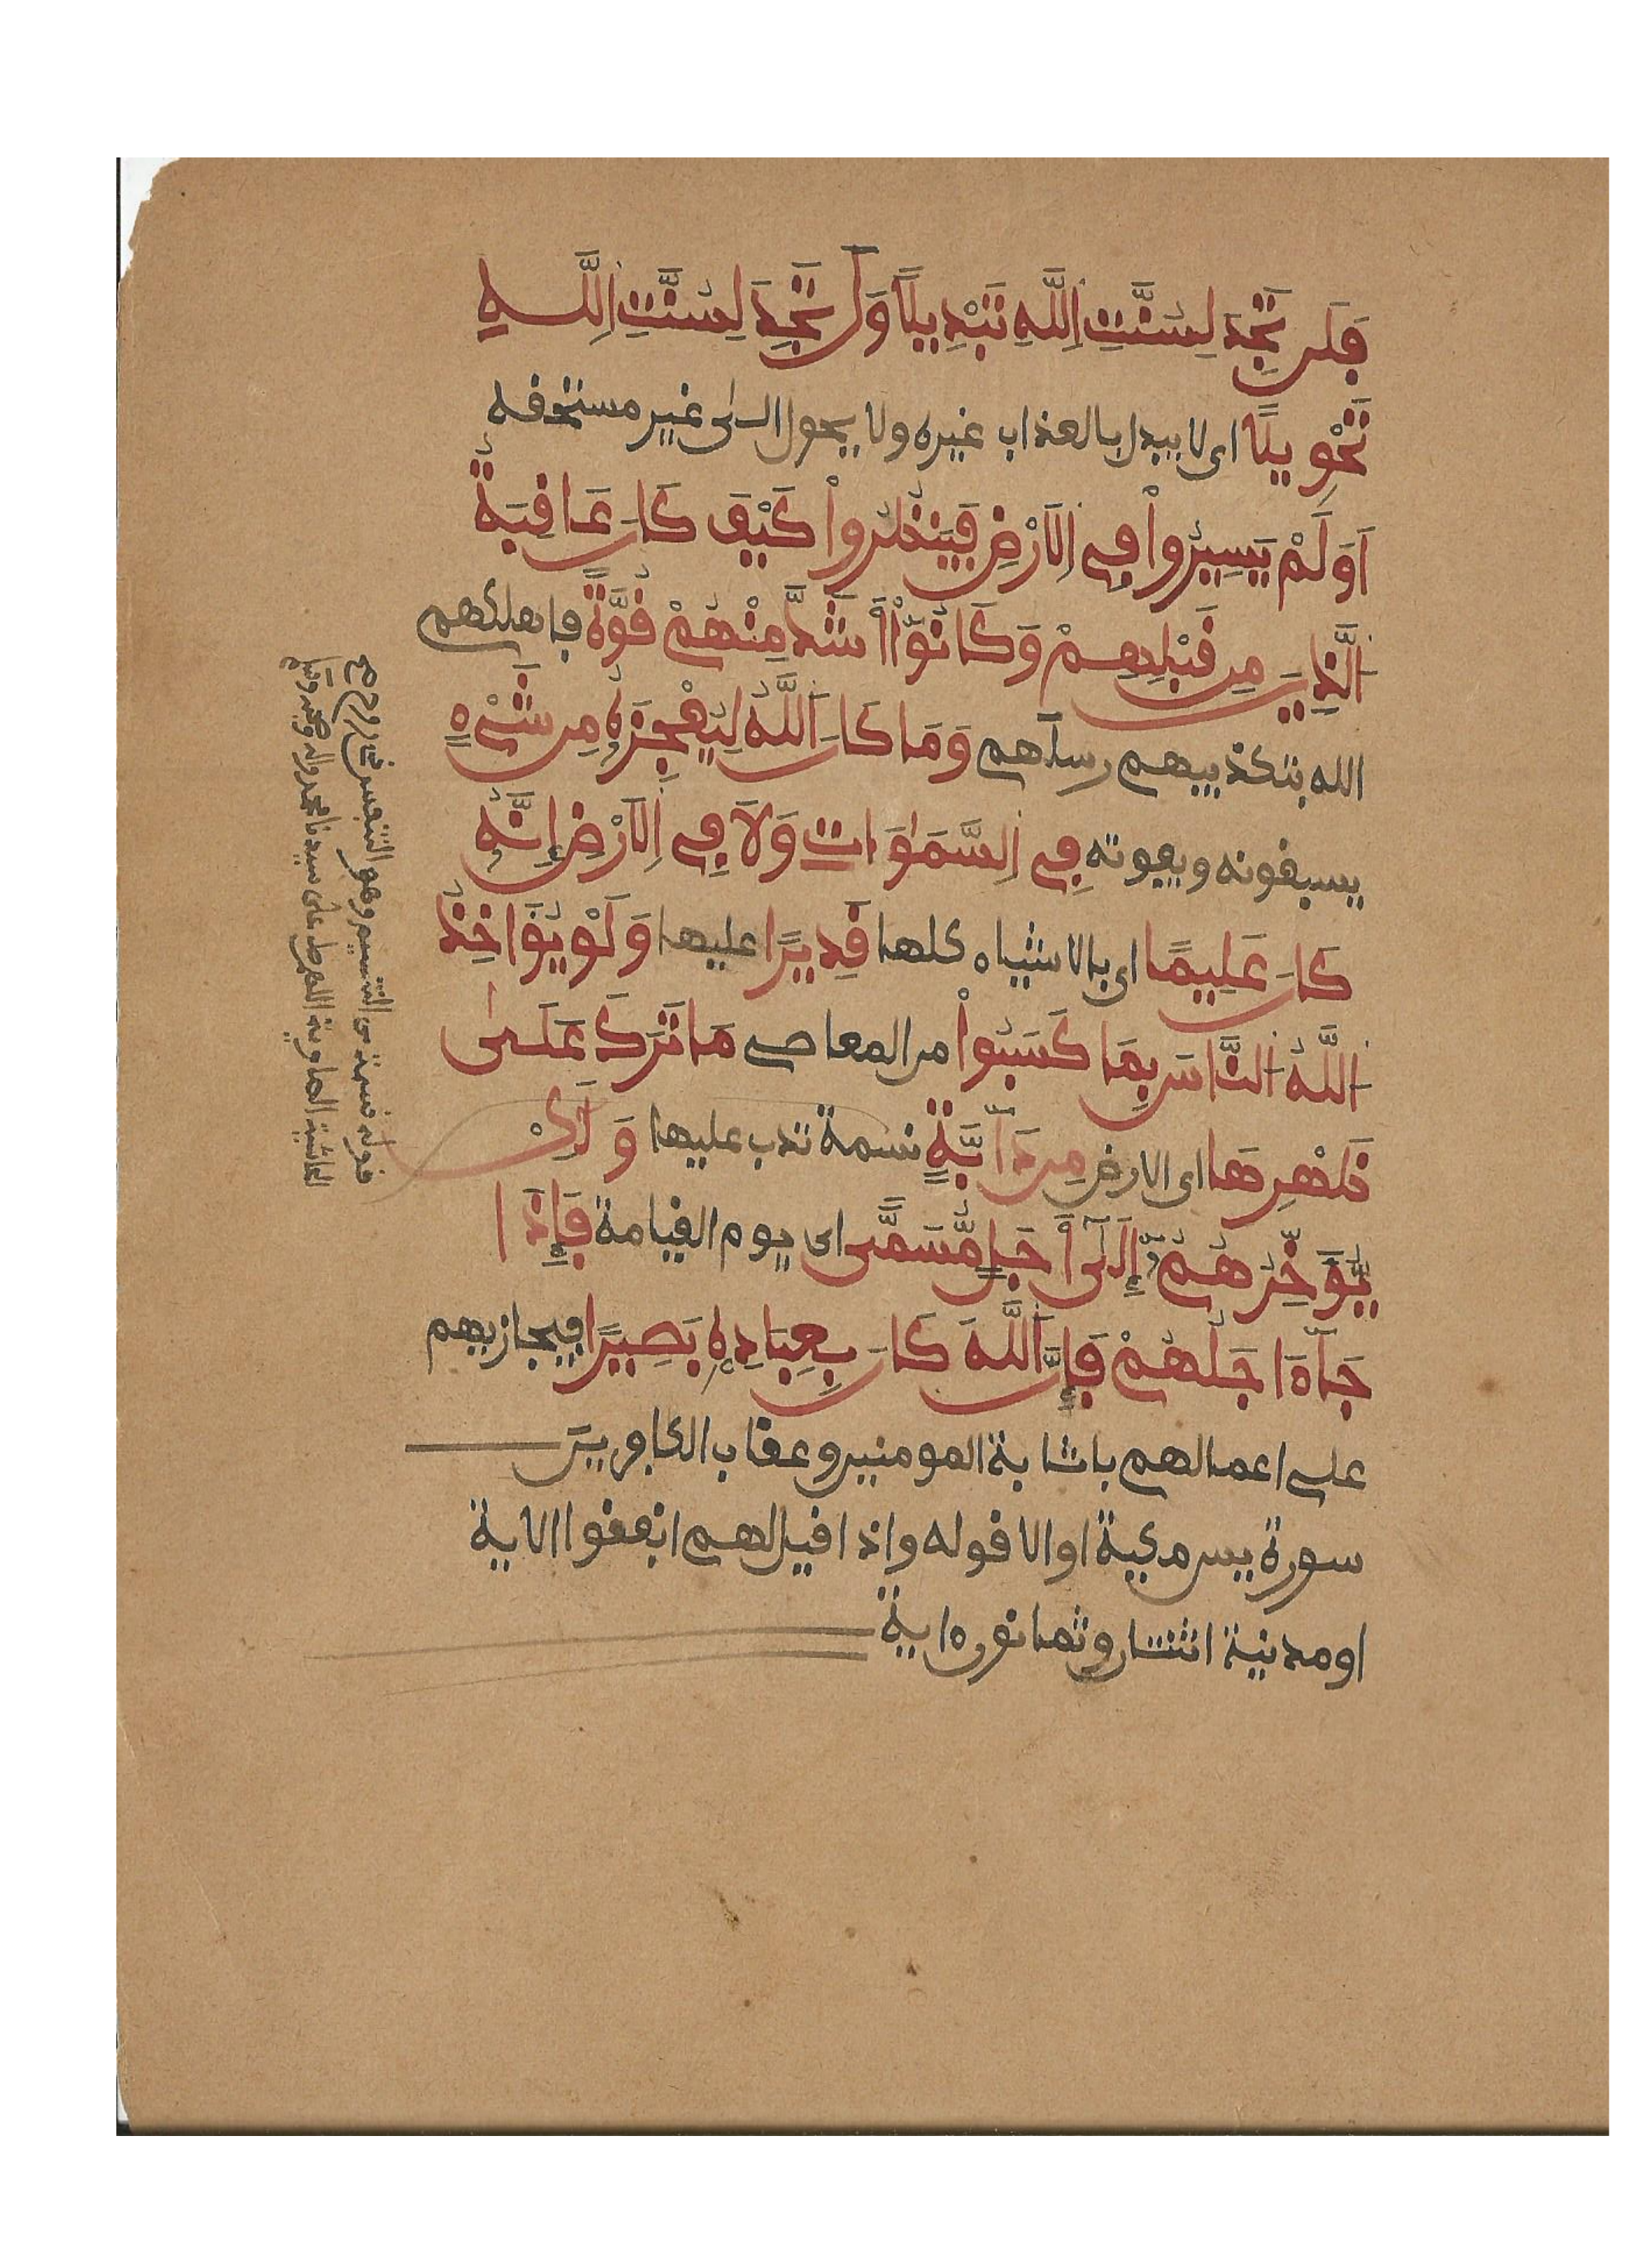 فَلَن تَجِدَ لِسُنَّتِ اِللَّهِ تَبْدِيلًا وَلَن تَجِدَ لِسُنَّتِ اِللَّهِ
تَحْوِيلًا اى لا يبدل بالعذاب غيره ولا يحول الى غير مستحقه
اَوَلَمْ يَسِيرُواْ فِے اِلَارْضِ فَيَنظُرُواْ كَيْفَ كَانَ عَاقِبَةُ
اَلذِينَ مِن قَبْلِهِمْ وَكَانُوٓاْ أَشَدَّ مِنْهُمْ قُوَّةً فاهلكهم
الله بتكذيبهم رسلهم وَمَا كَانَ اَللَّهُ لِيُعْجِزَهُۥ مِن شَےْءٍ
يسبقونه ويفوته فِے اِلسَّمَٰوَاتِ وَلَا فِے اِلَارْضِ إِنَّهُۥ
كَانَ عَلِيمًا اى بالاشياء كلها قَدِيرًا عليها وَلَوْ يُؤَاخِذُ
اُللَّهُ اُلنَّاسَ بِمَا كَسَبُواْ من المعاصے مَا تَرَكَ عَلَىٰ
ظَهْرِهَا اى الارض مِن دَآبَّةٍ نسمة تدب عليها وَلَٰكِنْ
يُّوَخِّرُهُمُۥٓ إِلَىٰٓ أَجَلٍ مُّسَمًّى اى يوم القيامة فَإِذَا
جَآءَ اجَلُهُمْ فَإِنَّ اَللَّهَ كَانَ بِعِبَادِهِۦ بَصِيرًا فيجازيهم
على اعمالهم باثابة المومنين وعقاب الكافرين
سورة يس مكية او الا قوله واذا قيل لهم انفقوا الاية
او مدنية اثنتان وثمانون ءاية
قوله نسمة من التنسيم وهو التنفس
الحاشية الصاوية اللهم صل على سيدنا محمد واله وصحبه وسلم